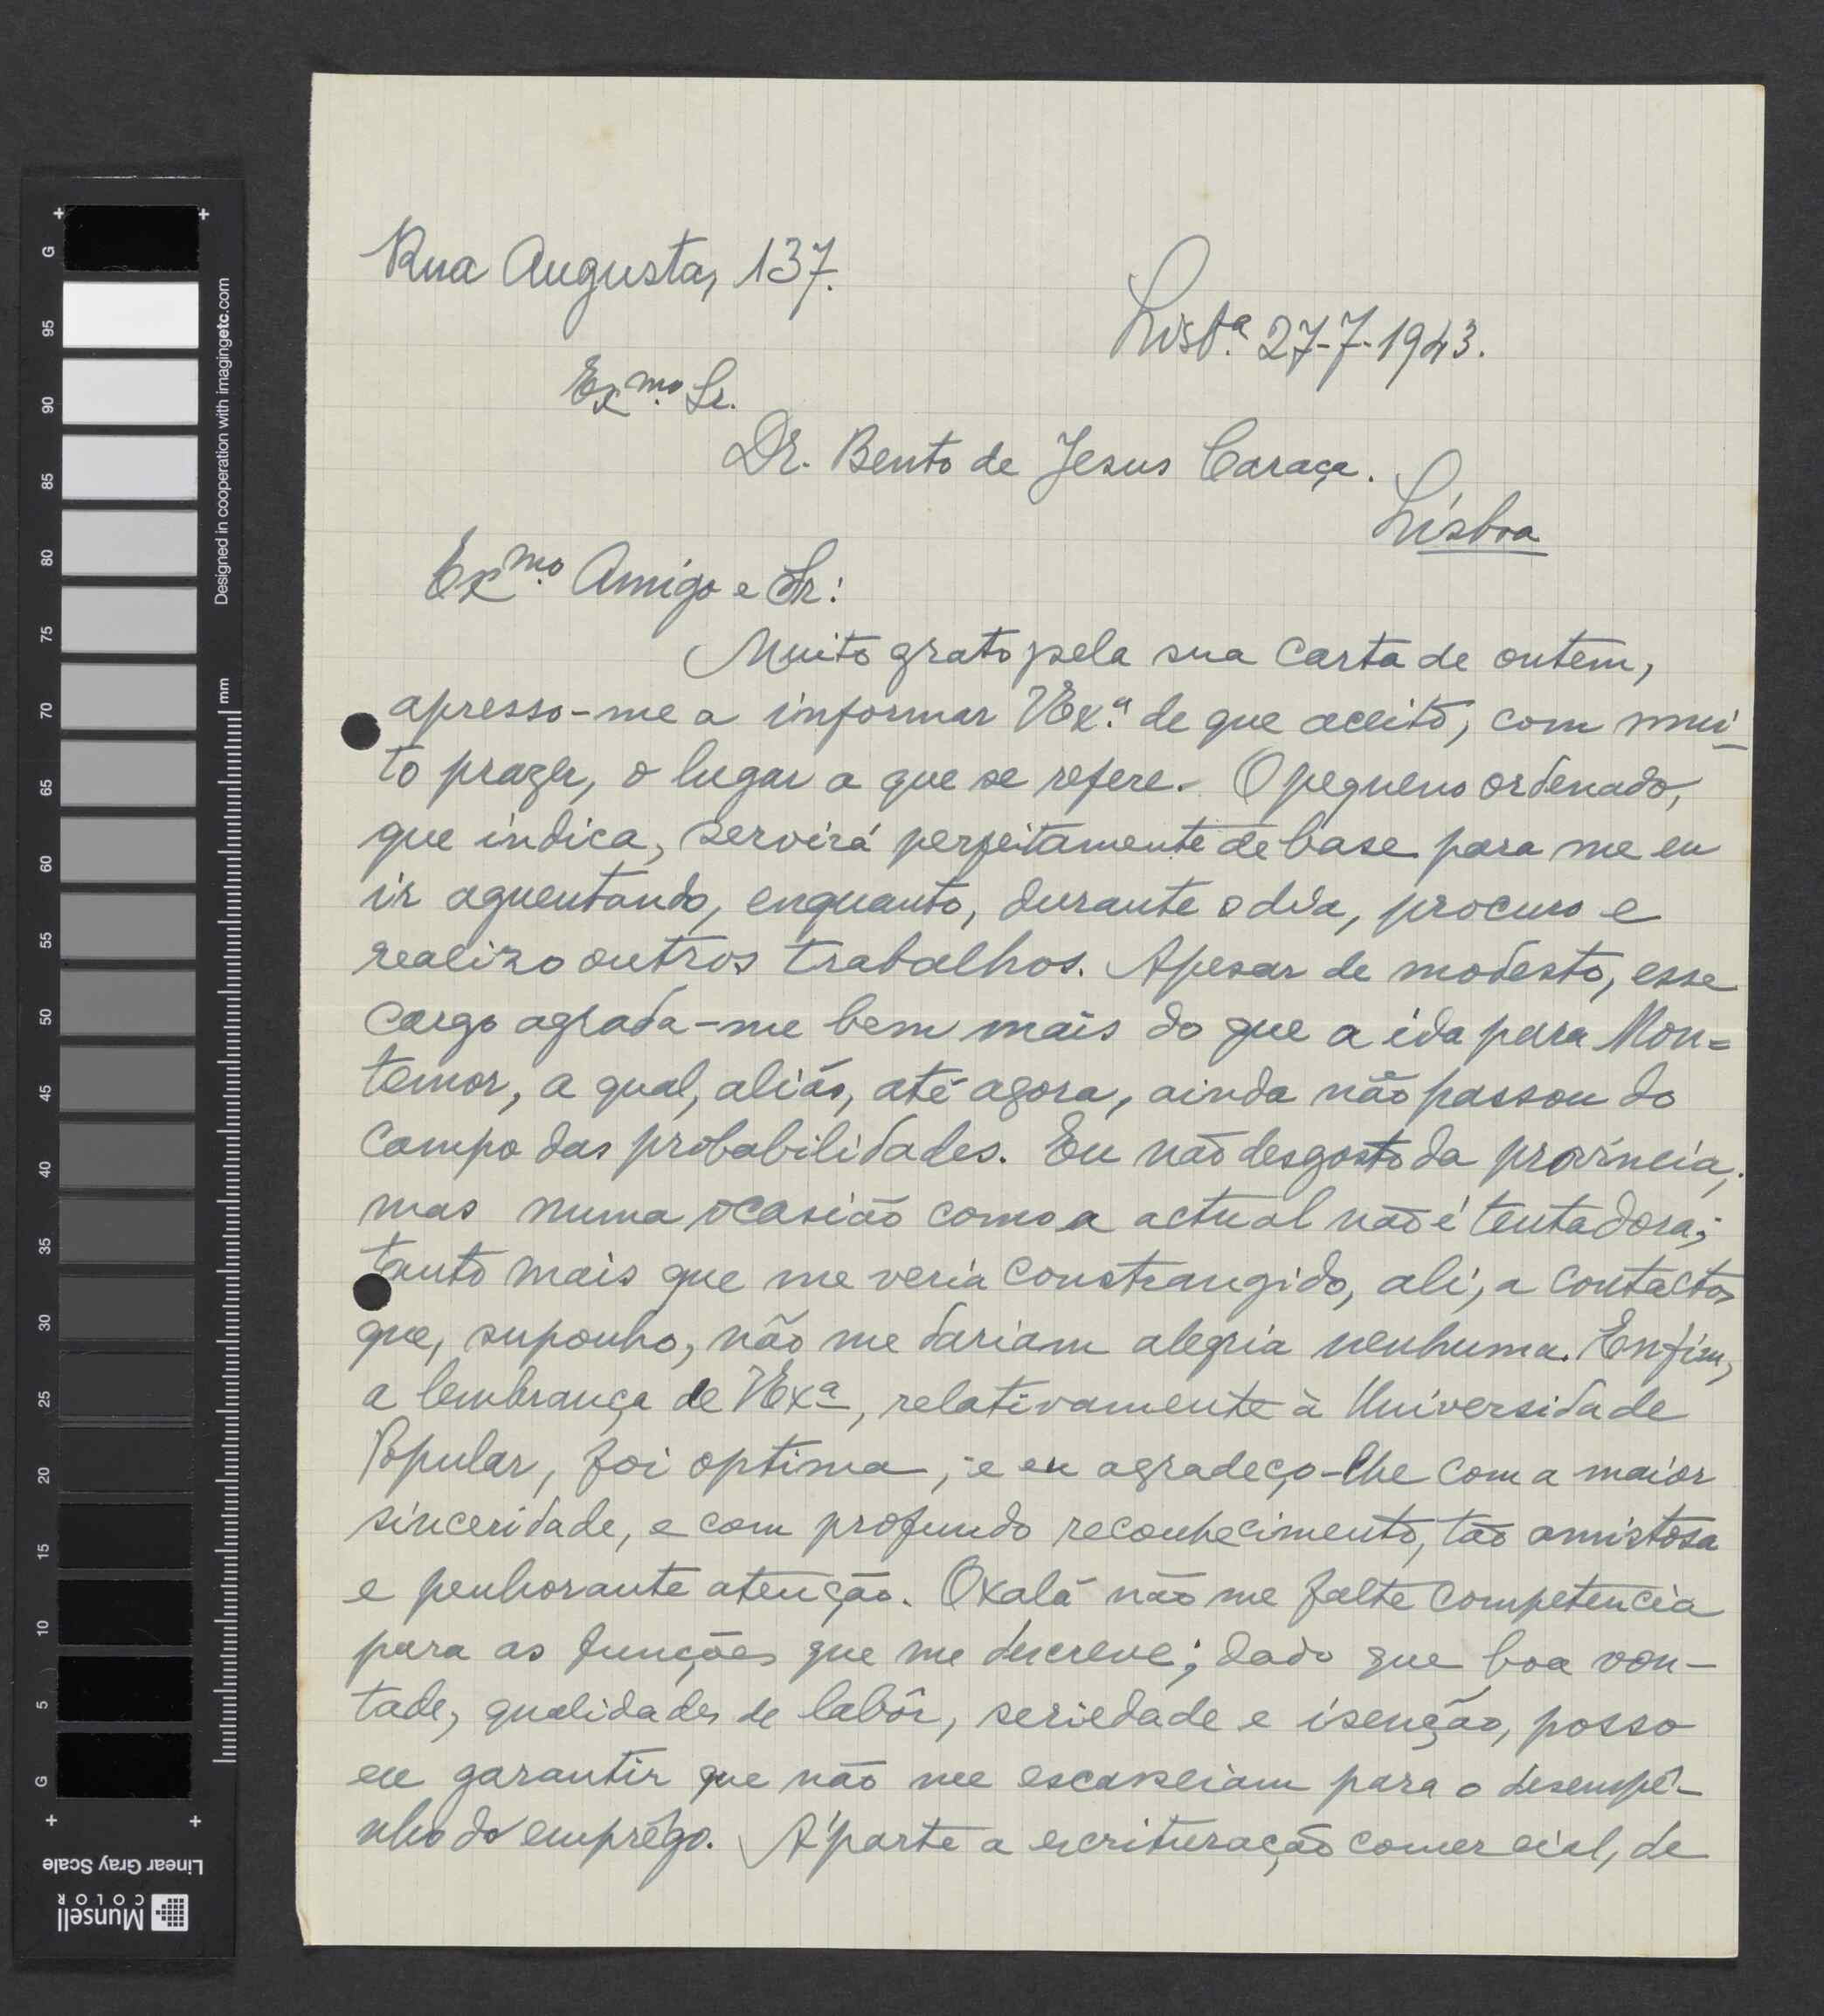 Rua Augusta, 137.
Lisbª 27-7-1943.
Exmo. Sr.
Dr. Bento de Jesus Caraça.
Lisboa
Exmo. Amigo e Sr:
Muito grato pela sua carta de ontem,
apresso-me a informar VExª de que aceito, com mui-
to prazer, o lugar a que se refere. O pequeno ordenado,
que indica, servirá perfeitamente de base para me eu
ir aguentando, enquanto, durante o dia, procuro e
realizo outros trabalhos. Apesar de modesto, esse
cargo agrada-me bem mais do que a ida para Mon=
temor, a qual, aliás, até agora, ainda não passou do
campo das probabilidades. Eu não desgosto da província,
mas numa ocasião como a actual não é tentadora;
tanto mais que me veria constrangido, ali, a contactos
que, suponho, não me dariam alegria nenhuma. Enfim,
a lembrança de VExª, relativamente à Universidade
Popular, foi optima, e eu agradeço-lhe com a maior
sinceridade, e com profundo reconhecimento, tão amistosa
e penhorante atenção. Oxalá não me falte competencia
para as funções que me descreve; dado que boa von-
tade, qualidades de labôr, seriedade e isenção, posso
eu garantir que não me escasseiam para o desempê-
nho do emprêgo. Àparte a escrituração comercial, de
G
95
90
85
80
75
70
65
60
55
50
45
40
35
30
25
20
15
10
5
G
mm
Designed in cooperation with imagingetc.com
Linear Gray Scale
Munsell
COLOR